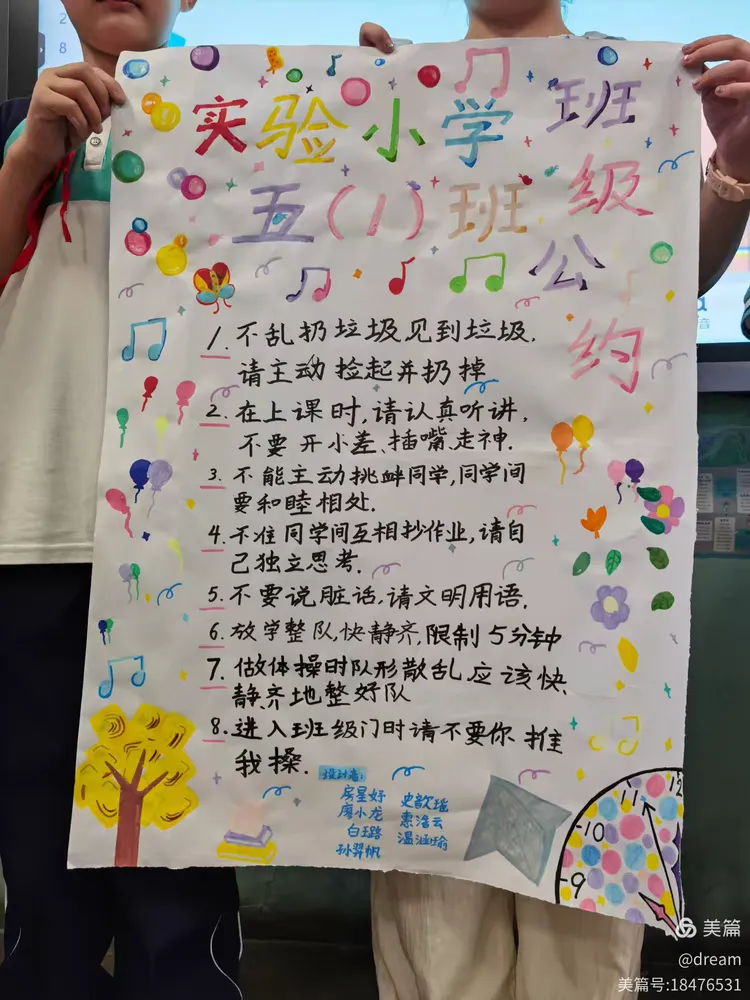 实验小学
五(1)班
班级公约
1.不乱扔垃圾见到垃圾,
请主动捡起并扔掉
2.在上课时,请认真听讲,
不要开小差、插嘴、走神.
3.不能主动挑衅同学,同学间
要和睦相处.
4.不准同学间互相抄作业,请自
己独立思考.
5.不要说脏话,请文明用语.
6.放学整队,快静齐,限制5分钟
7.做体操时队形散乱应该快、
静、齐地整好队
8.进入班级门时请不要你推
我搡.
设计者:
房星妤
廖小龙
孙羿帆
史歆瑶
惠浩云
温涵瑜
12
11
10
9
2
8
美篇
@dream
美篇号:18476531